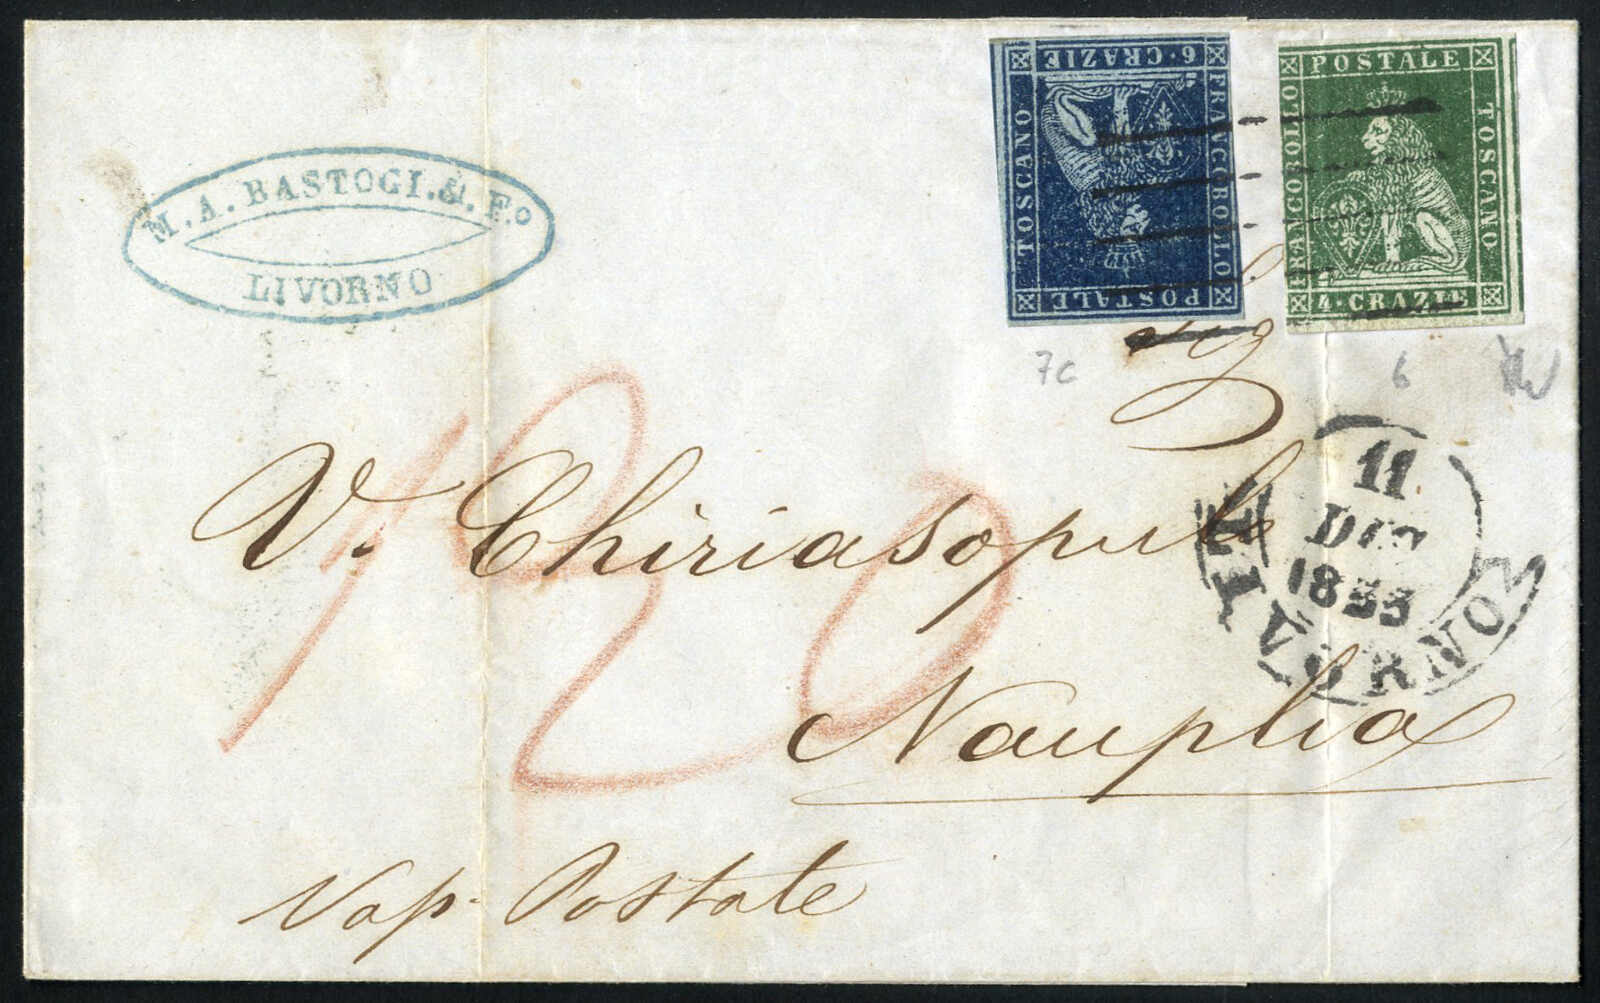 M. A. BASTOGI. & F.o
LIVORNO
6 · CRAZIE
TOSCANO
FRANCOBOLLO
POSTALE
POSTALE
FRANCOBOLLO
TOSCANO
4 · CRAZIE
7c
6
Sig
V. Chiriasopulo
120
11
DIC
1853
LIVORNO
Nauplia
Vap. Postale